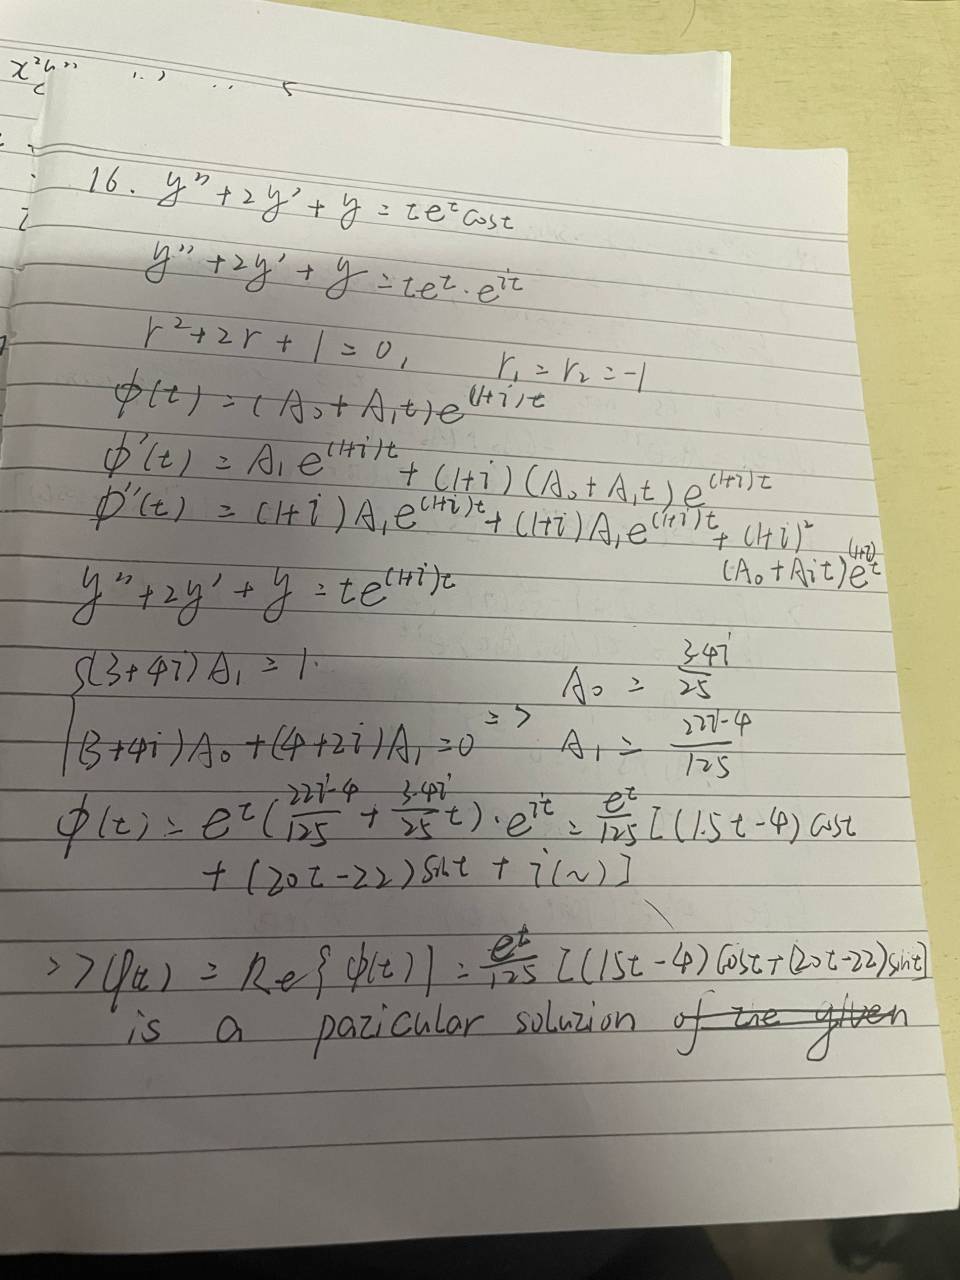 x²y''
16. y'' + 2y' + y = te^t cost
y'' + 2y' + y = te^t · e^{it}
r² + 2r + 1 = 0, r₁ = r₂ = -1
ϕ(t) = (A₀ + A₁t)e^{(1+i)t}
ϕ'(t) = A₁e^{(1+i)t} + (1+i)(A₀ + A₁t)e^{(1+i)t}
ϕ''(t) = (1+i)A₁e^{(1+i)t} + (1+i)A₁e^{(1+i)t} + (1+i)²
(A₀ + A₁t)e^{(1+i)t}
y'' + 2y' + y = te^{(1+i)t}
{(3+4i)A₁ = 1. A₀ = \frac{3-4i}{25}
(3+4i)A₀ + (4+2i)A₁ = 0 => A₁ = \frac{22i-4}{125}
ϕ(t) = e^t(\frac{22i-4}{125} + \frac{3-4i}{25}t)·e^{it} = \frac{e^t}{125}[(15t-4)cost
+ (20t-22)sint + i(~)]
=> φ(t) = Re{ϕ(t)} = \frac{e^t}{125}[(15t-4)cost + (20t-22)sint]
is a paticular solution of the given